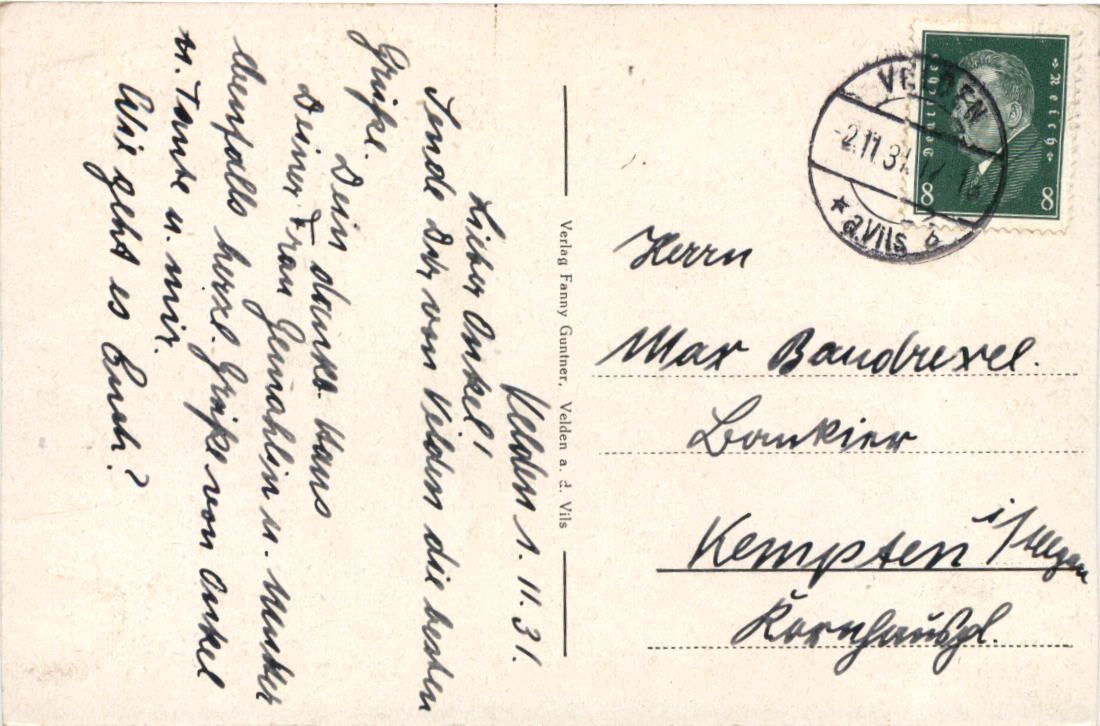 Velden 1. 11. 31.
Lieber Onkel!
Sende Dir von Velden die besten
Grüße.
Dein dankb. Hans
Deiner Frau Gemahlin u. Mutter
ebenfalls herzl. Grüße von Onkel
u. Tante u. mir.
Wie geht es Euch?
Verlag Fanny Guntner, Velden a. d. Vils
Deutsches Reich
8 8
VELDEN
-2.11.31
* a.Vils
Herrn
Max Baudrexel.
Bankier
Kempten i/Allgäu
Kornhauspl.